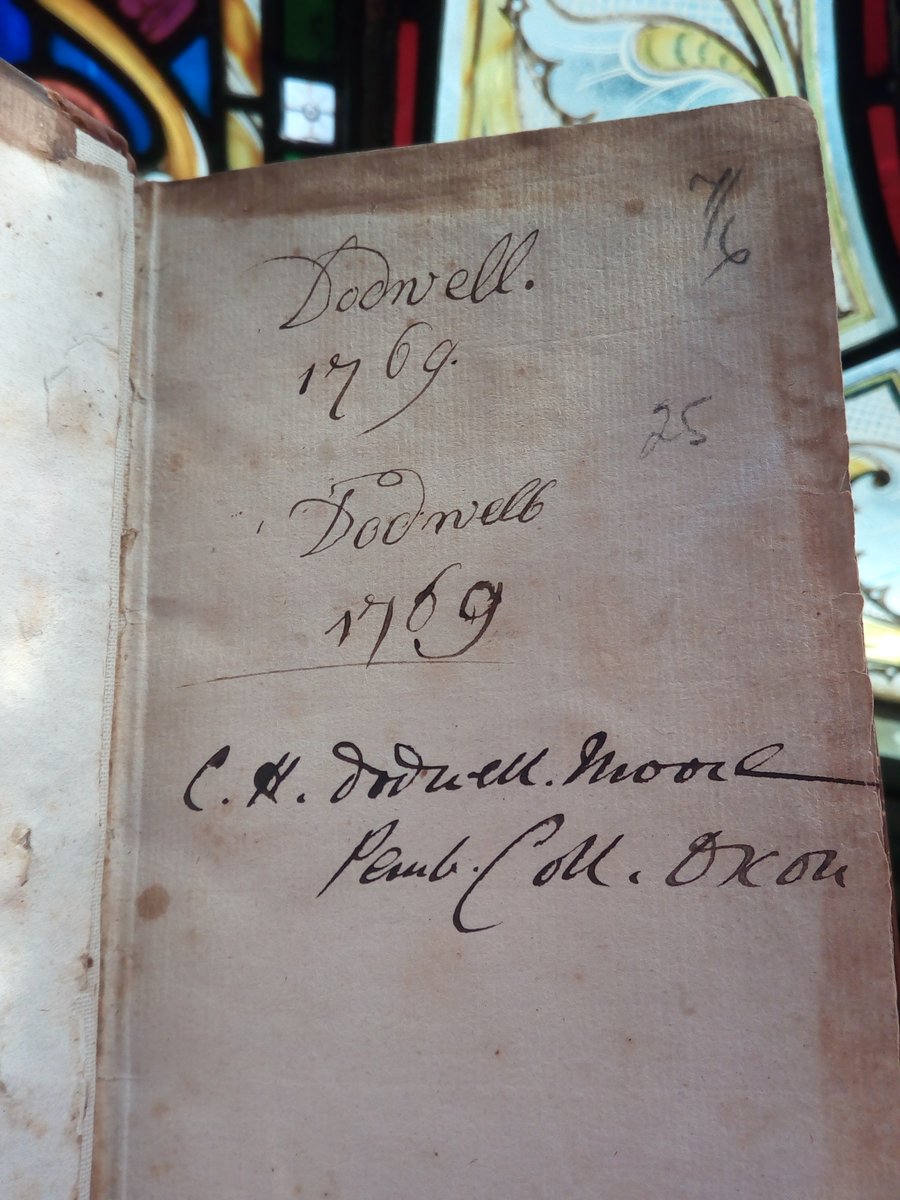 7/6
Dodwell.
1769.
25
Dodwell
1769
C. H. Dodwell. Moore
Pemb. Coll. Oxon